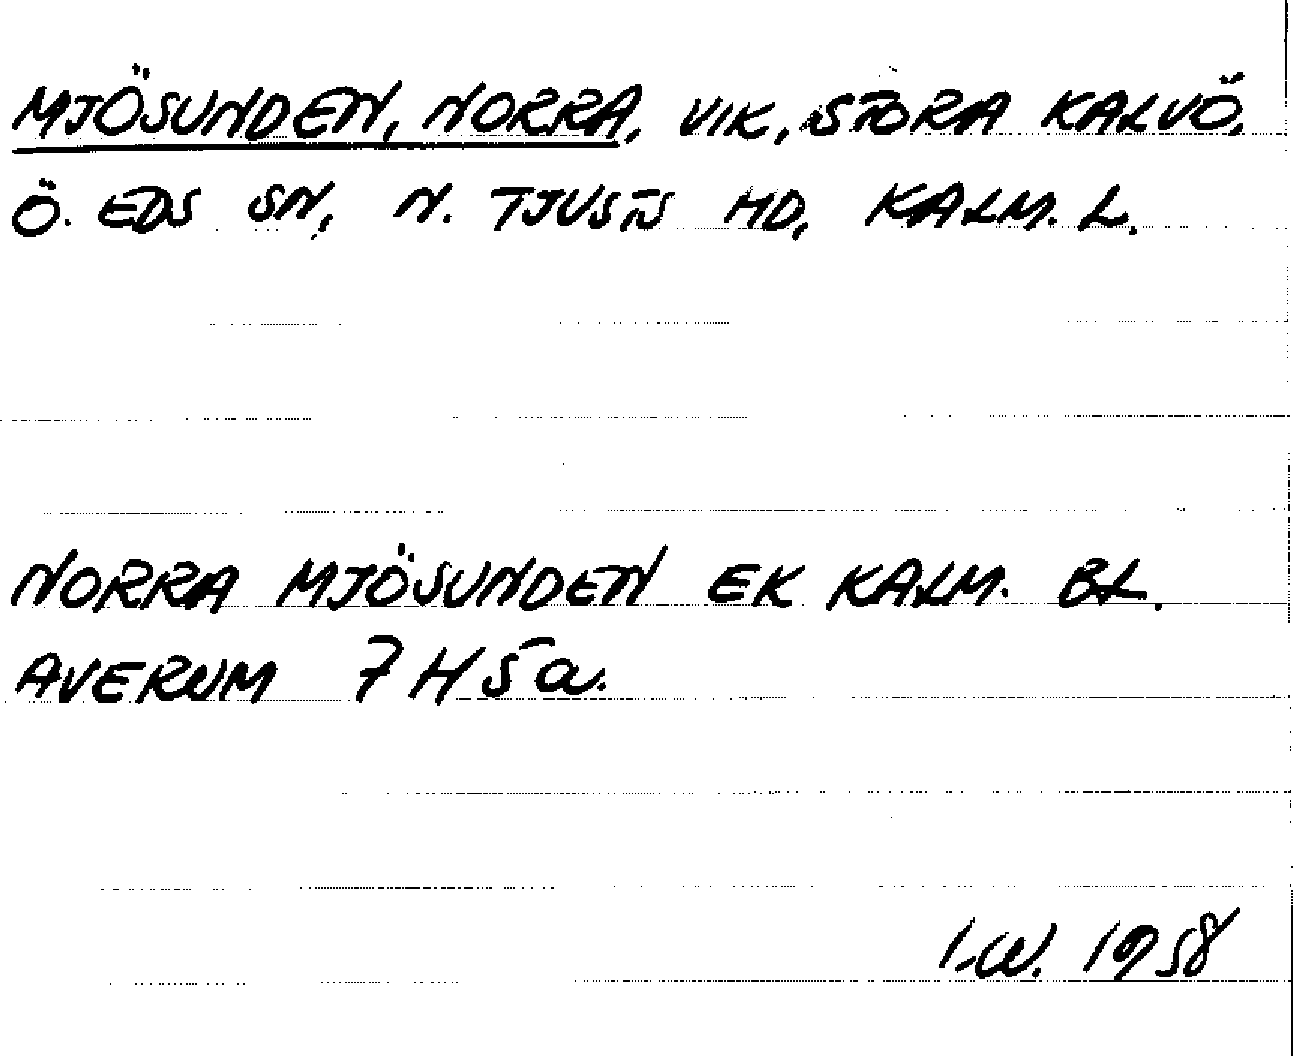 MJÖSUNDEN, NORRA, VIK, STORA KALVÖ,
Ö. EDS SN, N. TJUSTS HD, KALM. L.
NORRA MJÖSUNDEN EK KALM. BL.
AVERUM 7H5a.
I.W. 1958